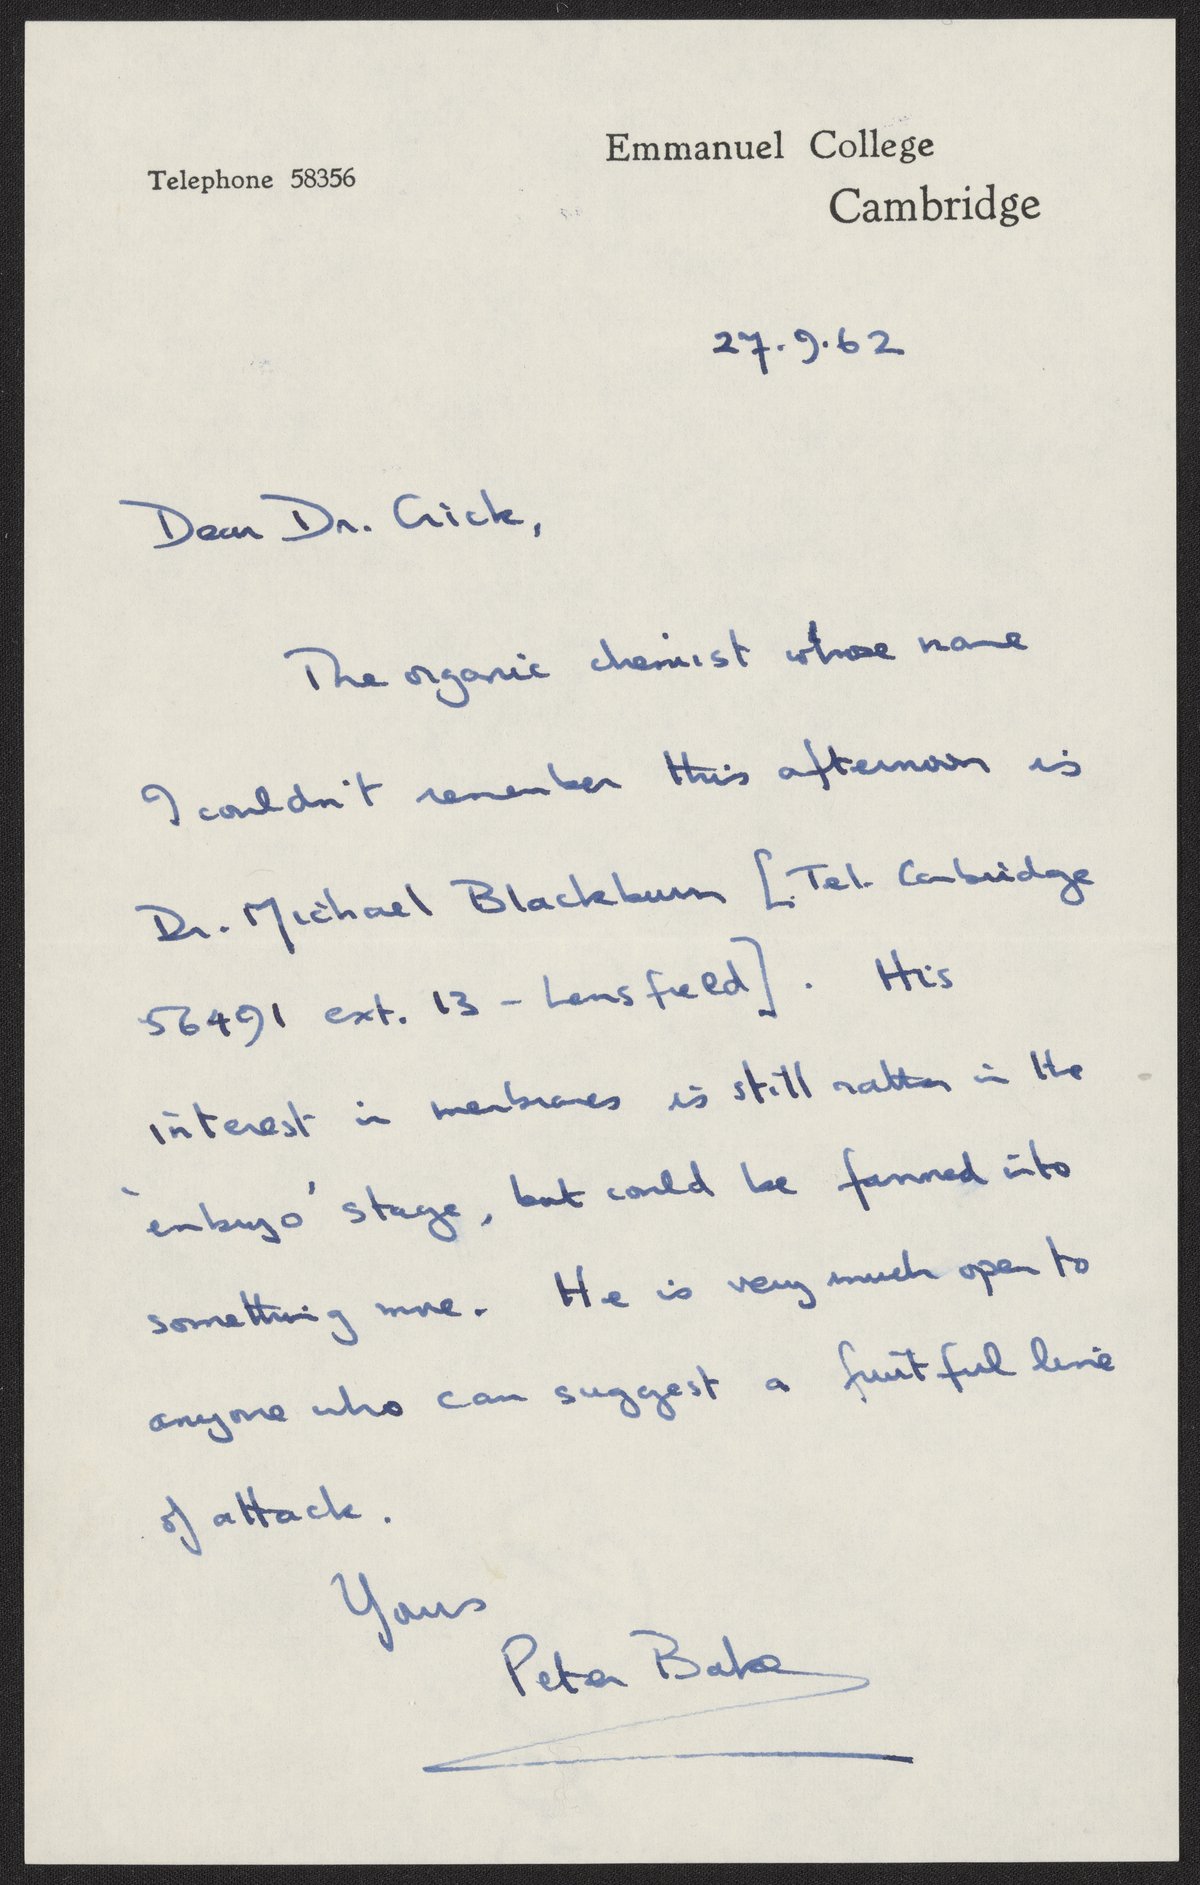 Telephone 58356
Emmanuel College
Cambridge
27.9.62
Dear Dr. Crick,
The organic chemist whose name
I couldn't remember this afternoon is
Dr. Michael Blackburn [Tel. Cambridge
56491 ext. 13 - Lensfield]. His
interest in membranes is still rather in the
'embryo' stage, but could be fanned into
something more. He is very much open to
anyone who can suggest a fruitful line
of attack.
Yours
Peter Baker